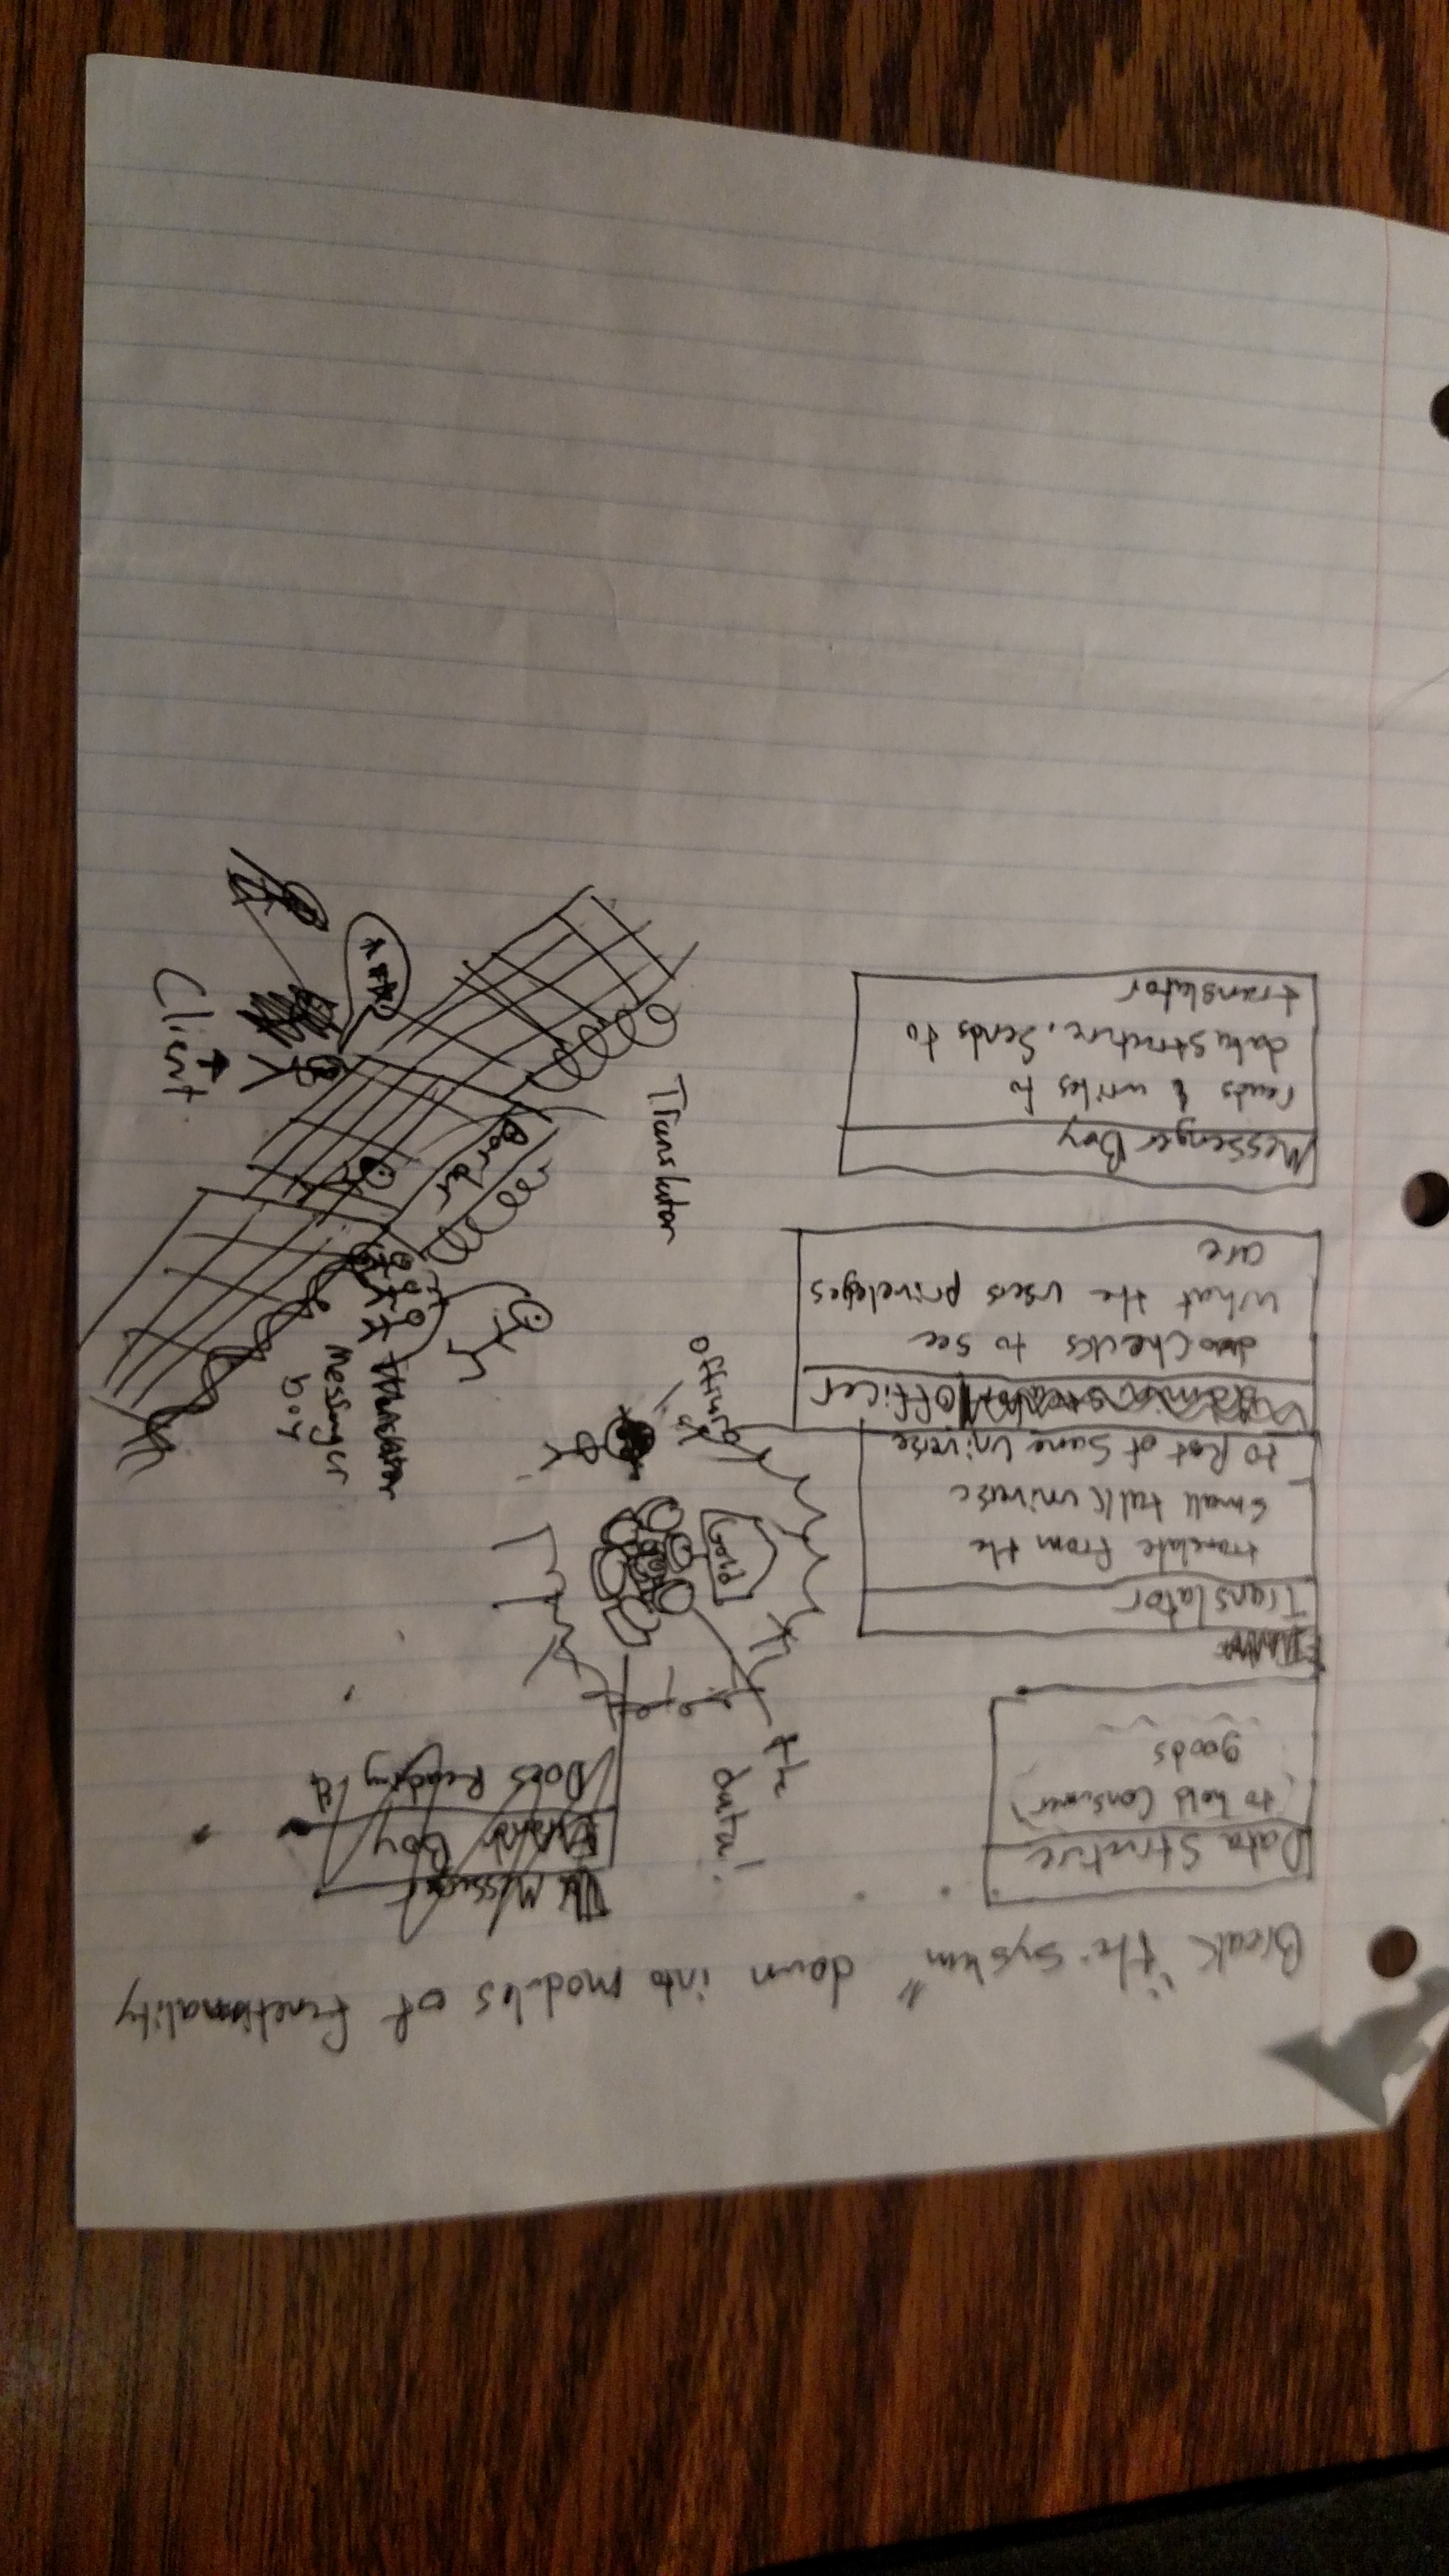 Break "the system" down into modules of functionality
Data Structure
(to hold consumer)
goods
Translator
translate from the
small talk universe
to Rest of Sane Universe
Officer
checks to see
what the users priveleges
are
Messenger Boy
reads & writes to
data structure, sends to
translator
Boy
Does Reading &
the
Data!
Gold
Officer
Translator
Border
Messenger
boy
Client